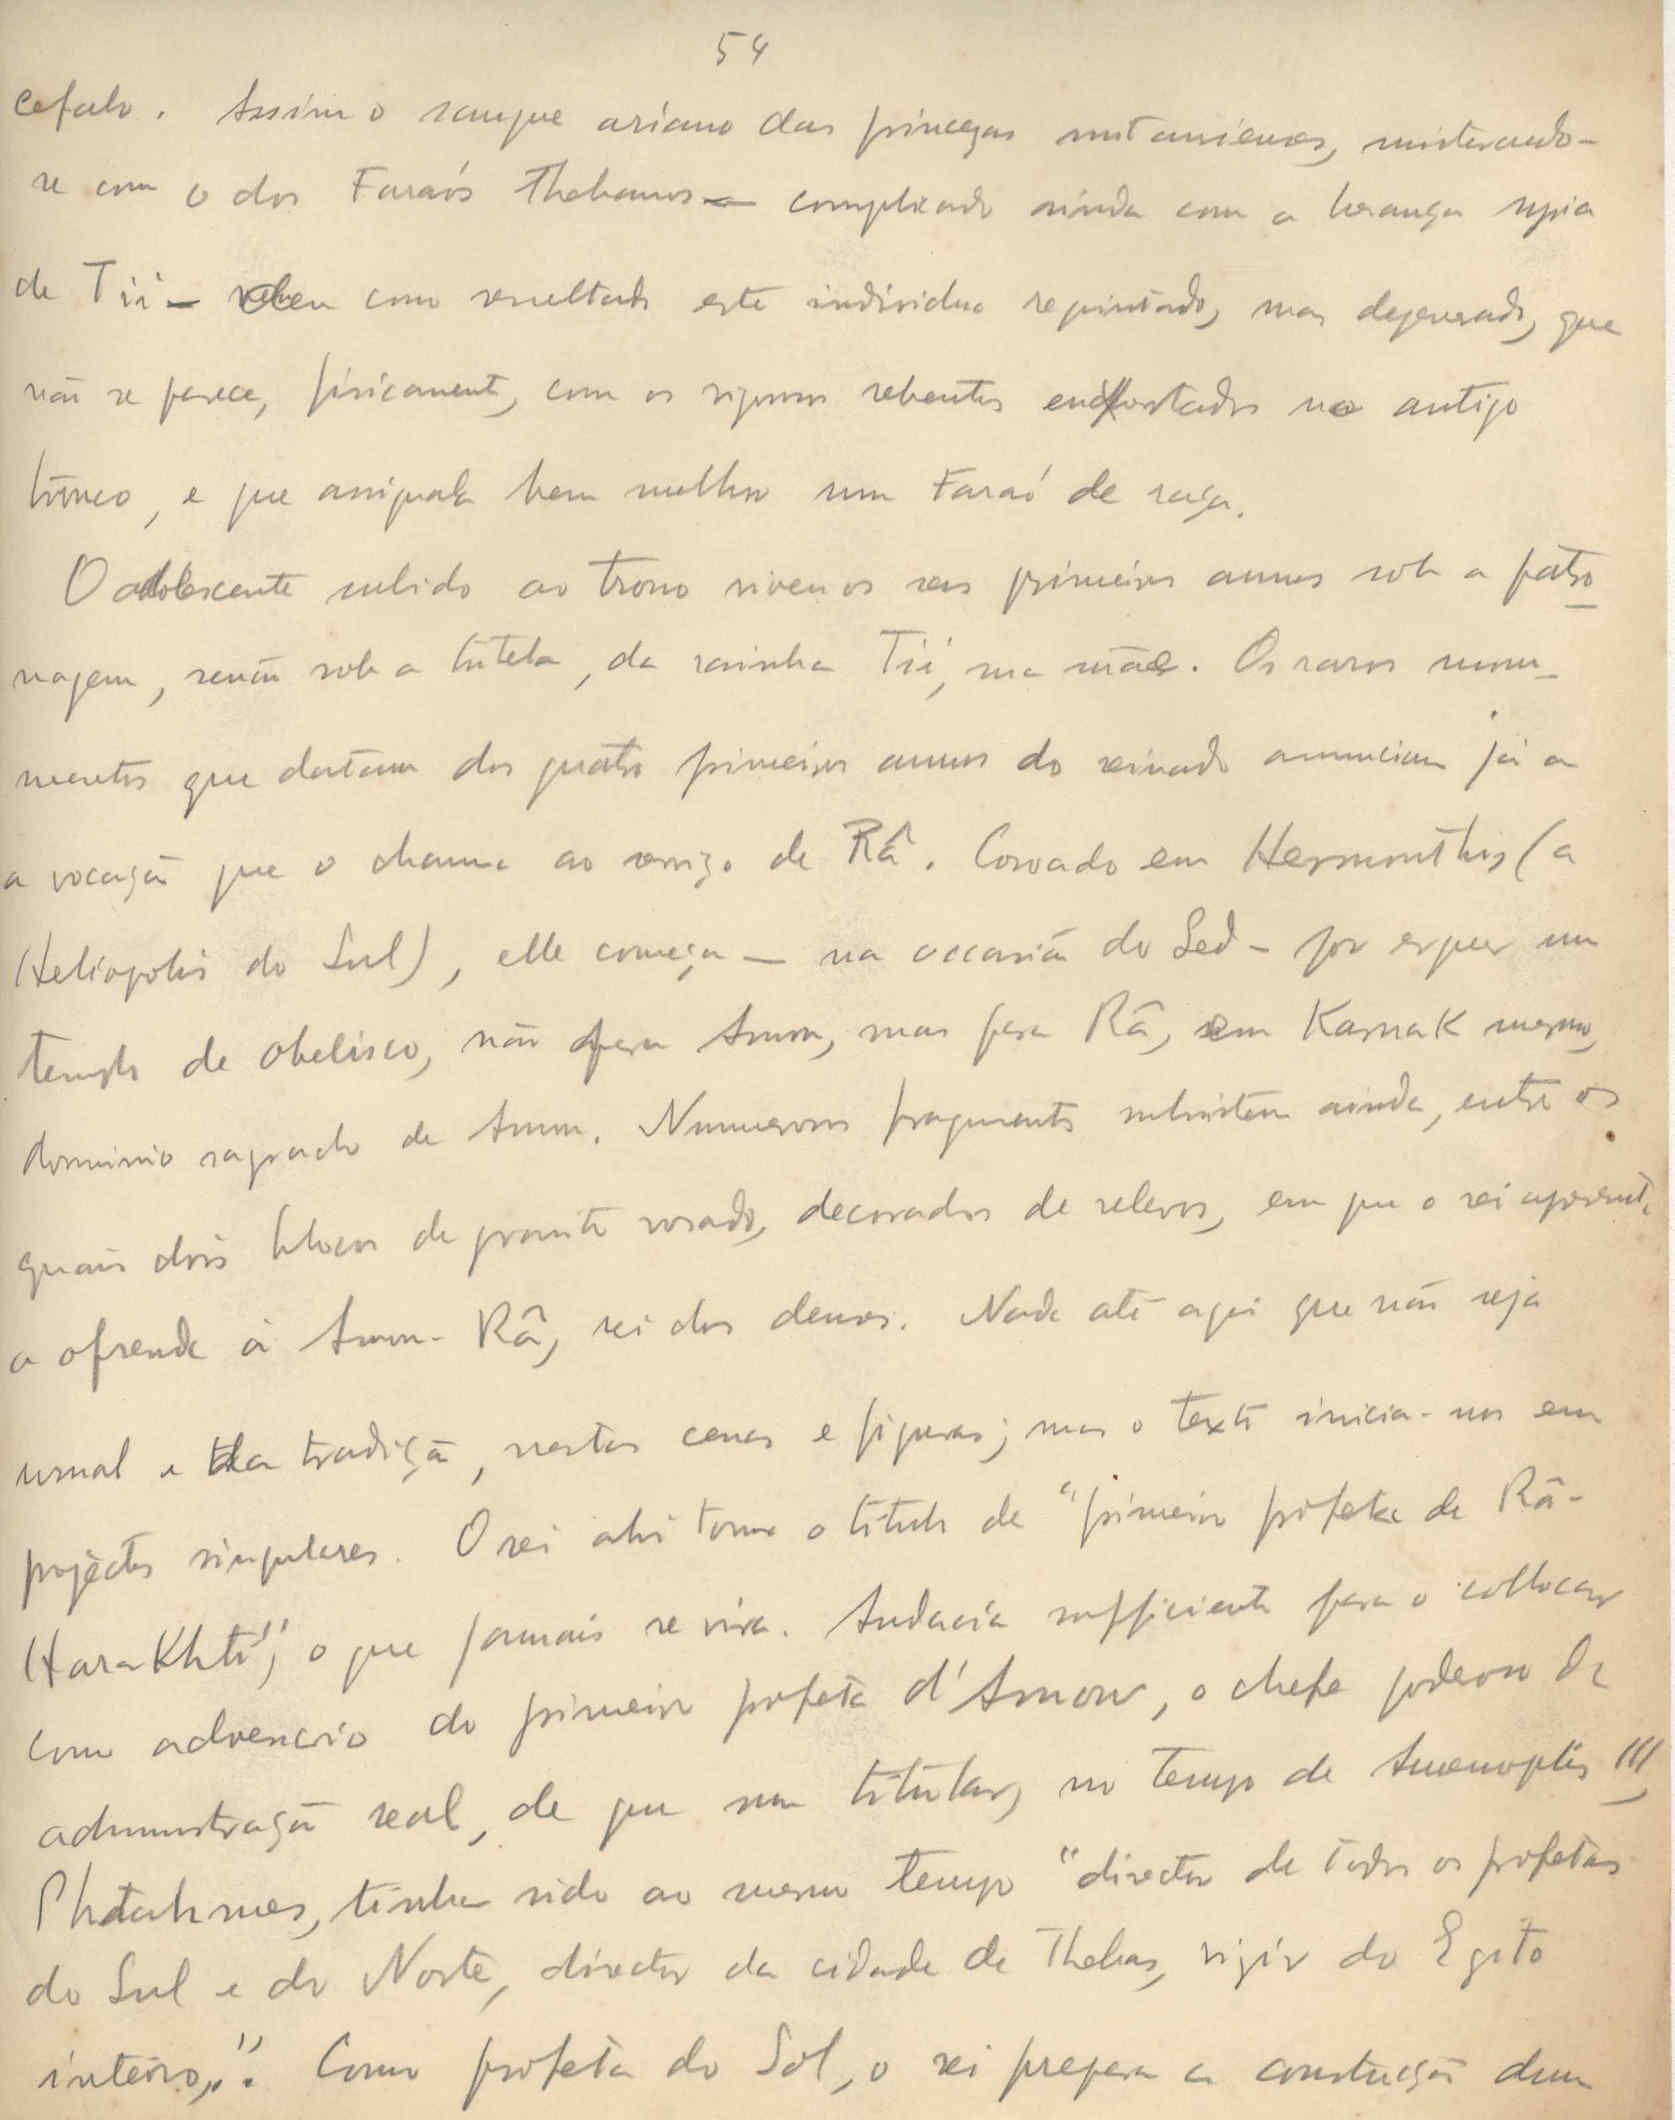 54
cefalo. Assim o sangue ariano das princezas mitanienes, misturando-
se com o dos Faraós Thebanos — complicado ainda com a herança syria
de Tii — deu como resultado este individuo requintado, mas degenerado, que
não se parece, fisicamente, com os vigorosos rebentos enxertados no antigo
tronco, e que assignala bem melhor um Faraó de raça.
O adolescente subido ao trono viveu os seus primeiros annos sob a patro
nagem, senão sob a tutela, da rainha Tii, sua mãe. Os raros monu-
mentos que datam dos quatro primeiros annos do reinado annunciam já a
a vocação que o chama ao serviço de Râ. Coroado em Hermonthis (a
Heliopolis do Sul), elle começa — na occasião do Sed — por erguer um
templo de obelisco, não para Amon, mas para Râ, em Karnak mesmo,
dominio sagrado de Amon. Numerosos fragmentos subsistem ainda, entre os
quais dois blocos de granito rosado, decorados de relevos, em que o rei apresenta
a ofrenda à Amon-Râ, rei dos deuses. Nada até aqui que não seja
usual e da tradição, nestas cenas e figuras; mas o texto inicia-nos em
projéctos singulares. O rei ahi toma o titulo de "primeiro profeta de Râ-
Harakhti", o que jamais se vira. Audacia sufficiente para o collocar
como adversario do primeiro profeta d'Amon, o chefe poderoso da
administração real, de que um titular, no tempo de Amenophis III,
Phtahmes, tinha sido ao mesmo tempo "director de todos os profetas
do Sul e do Norte, director da cidade de Thebas, vizir do Egito
inteiro,". Como profeta do Sol, o rei prepara a construção dum